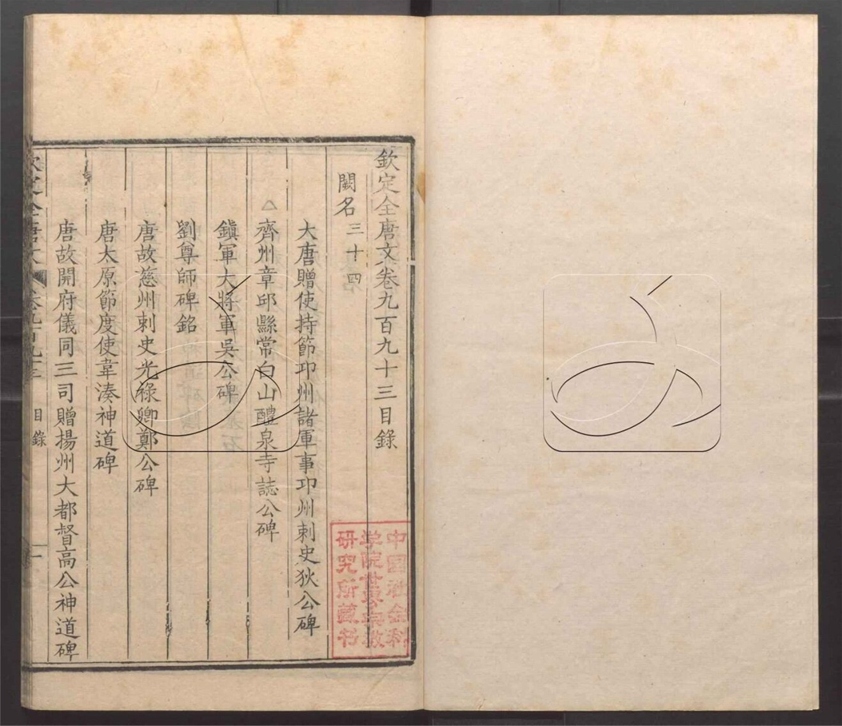 欽定全唐文卷九百九十三目錄
闕名三十四
大唐贈使持節邛州諸軍事邛州刺史狄公碑
齊州章邱縣常白山醴泉寺誌公碑
鎭軍大將軍吳公碑
劉尊師碑銘
唐故慈州刺史光祿卿鄭公碑
唐太原節度使韋湊神道碑
唐故開府儀同三司贈揚州大都督高公神道碑
欽定全唐文 卷九百九十三 目錄 一
中国社会科
学院世界宗教
研究所藏书